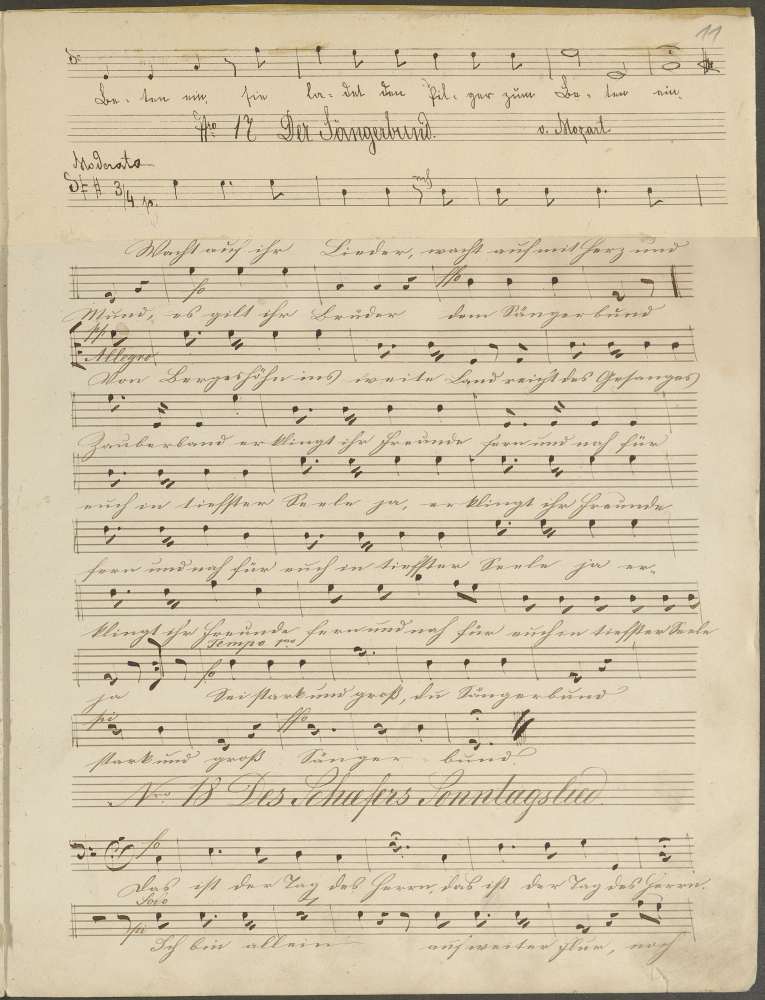 11
Be- ten ein, sie la- det den Pil- ger zum Be- ten ein.
Nro 17 Der Sängerbund. v. Mozart.
Moderato
3/4 p. mf
Wacht auf ihr Lieder, wacht auf mit Herz und
fo ffo
Mund, es gilt ihr Brüder dem Sängerbund
pp
Allegro
Von Bergeshöhn ins weite Land reicht des Gesanges
Zauberband erklingt ihr Freunde fern und nah für
euch in tiefster Seele ja, erklingt ihr Freunde
fern und nah für euch in tiefster Seele ja er-
klingt ihr Freunde fern und nah für euch in tiefster Seele
Tempo 1mo
fo
ja Sei stark und groß, du Sängerbund
pi ffo
stark und groß Sänger- bund.
Nro 18 Des Schäfers Sonntagslied.
fo
Das ist der Tag des Herrn, das ist der Tag des Herrn.
Solo
pi
Ich bin allein auf weiter Flur, noch